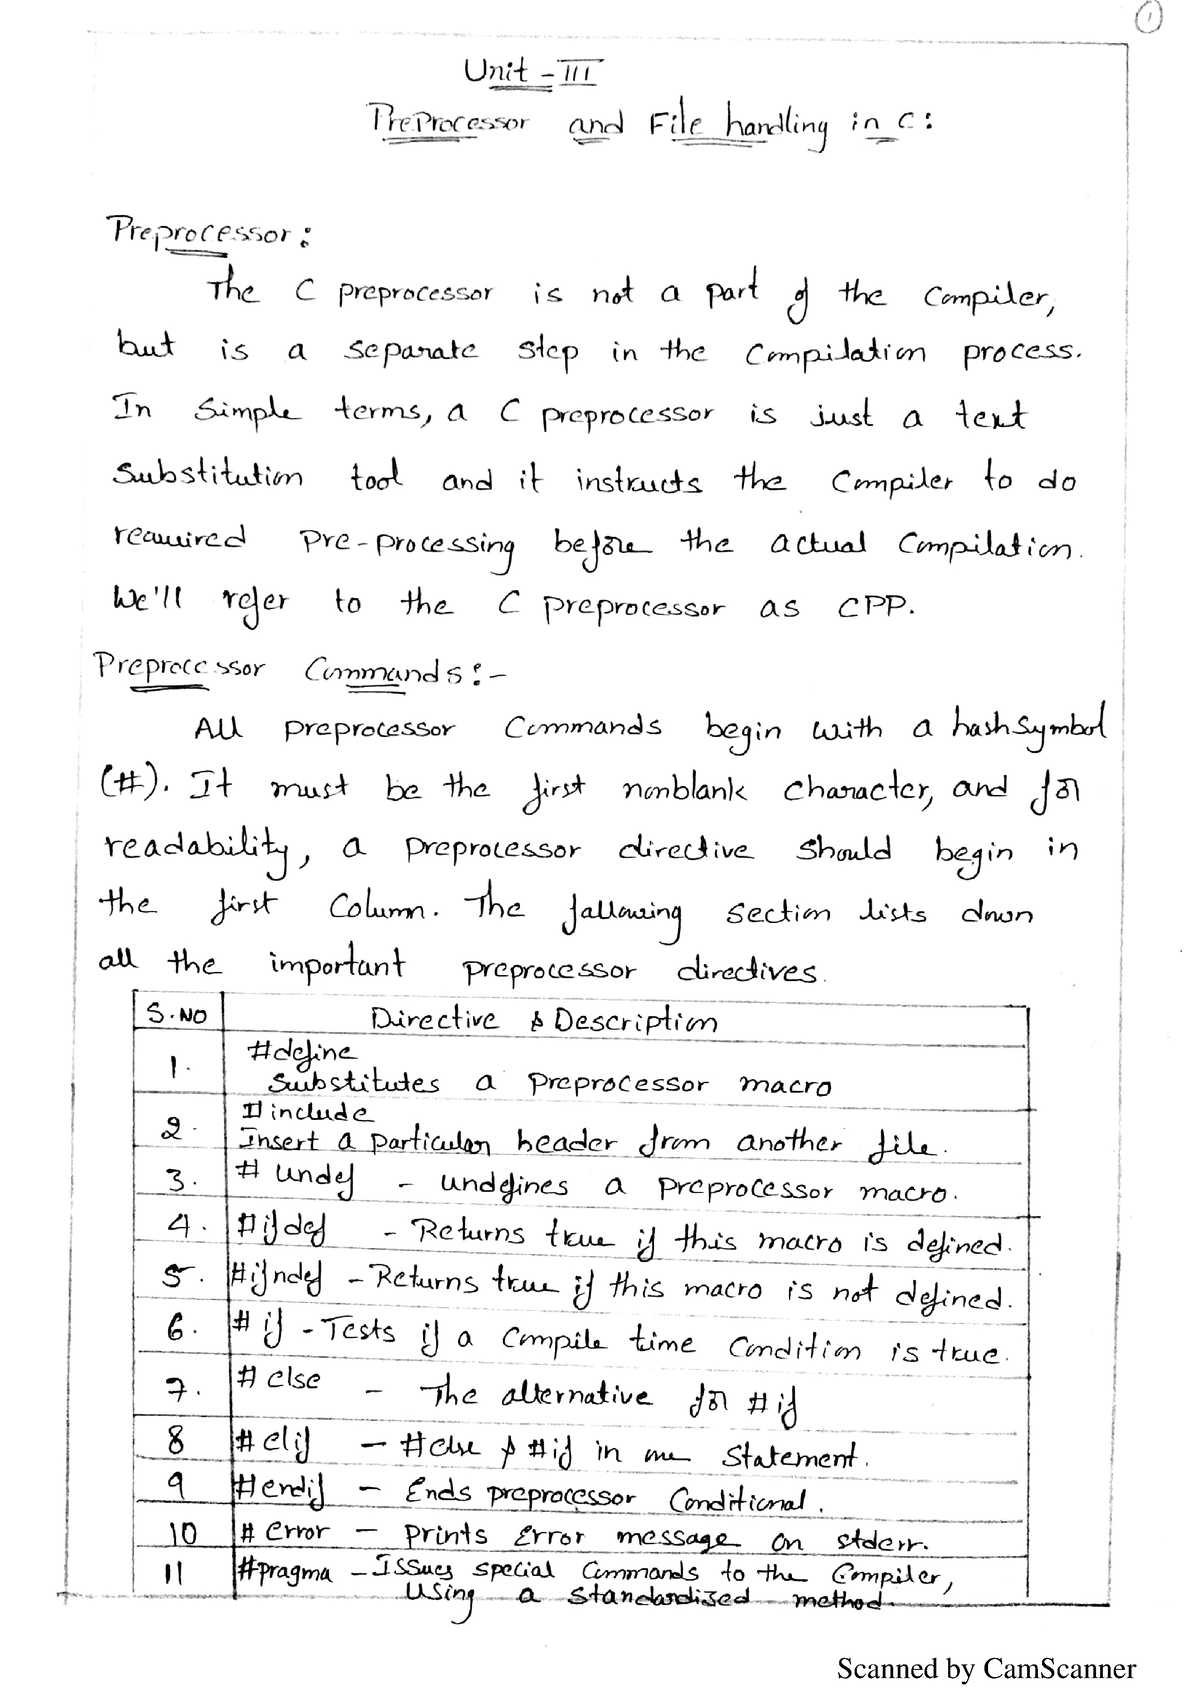 1
Unit - III
PreProcessor and File handling in C:
Preprocessor:
The C preprocessor is not a part of the Compiler,
but is a separate step in the Compilation process.
In Simple terms, a C preprocessor is just a text
Substitution tool and it instructs the Compiler to do
required Pre-processing before the actual Compilation.
We'll refer to the C preprocessor as CPP.
Preprocessor Commands:-
All preprocessor Commands begin with a hash Symbol
(#). It must be the first nonblank character, and for
readability, a preprocessor directive should begin in
the first Column. The fallowing section lists down
all the important preprocessor directives.
S.NO Directive & Description
1. #define
Substitutes a preprocessor macro
2. #include
Insert a particular header from another file.
3. # undef - undefines a preprocessor macro.
4. #ifdef - Returns true if this macro is defined.
5. #ifndef - Returns true if this macro is not defined.
6. # if - Tests if a Compile time Condition is true.
7. # else - The alternative for #if
8 # elif - #else & #if in one Statement.
9 #endif - Ends preprocessor Conditional.
10 # error - prints Error message on stderr.
11 #pragma - Issues special Commands to the Compiler,
Using a Standardized method.
Scanned by CamScanner